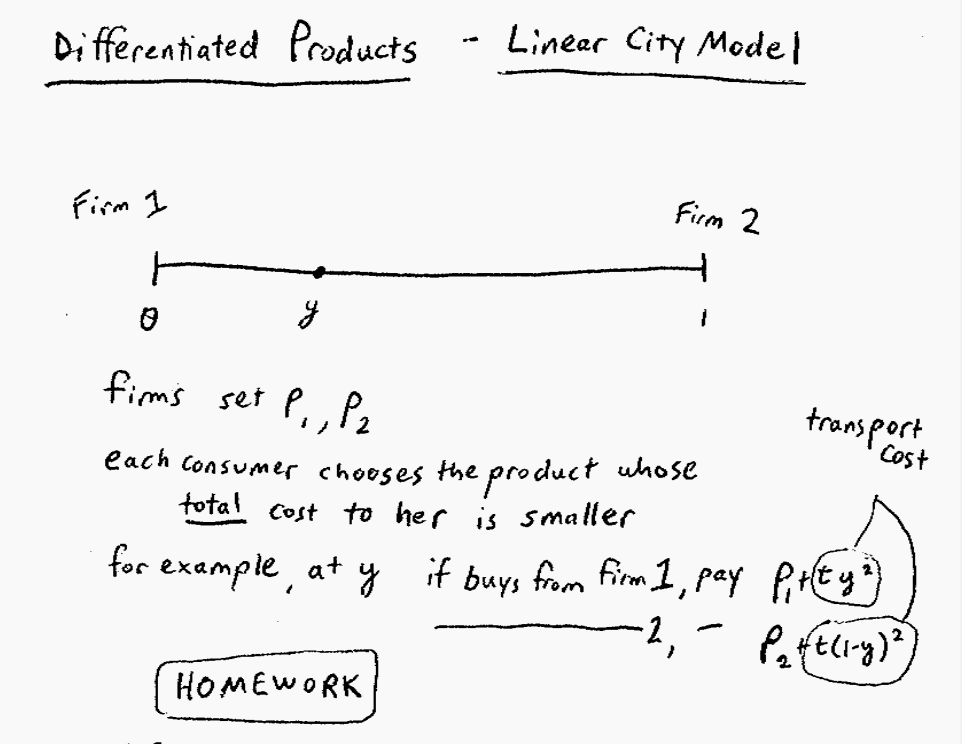 Differentiated Products - Linear City Model
Firm 1
Firm 2
0
y
1
firms set P₁, P₂
transport
cost
each consumer chooses the product whose
total cost to her is smaller
for example, at y if buys from Firm 1, pay P₁+ty²
2, – P₂+t(1-y)²
HOMEWORK